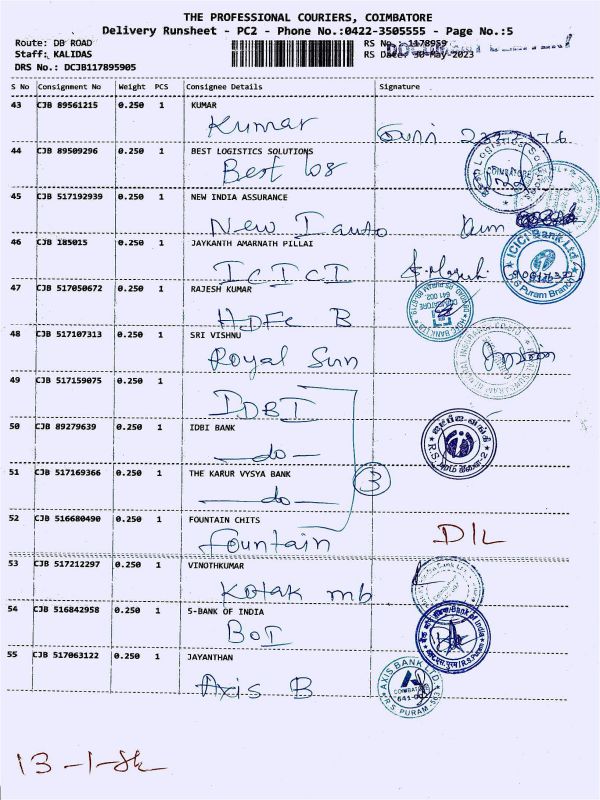 THE PROFESSIONAL COURIERS, COIMBATORE
Delivery Runsheet - PC2 - Phone No.:0422-3505555 - Page No.:5
Route: DB ROAD
RS No.: 1178959
Staff: KALIDAS
RS Date: 30-May-2023
DRS No.: DCJB117895905
S No Consignment No Weight PCS Consignee Details Signature
43 CJB 89561215 0.250 1 KUMAR
Kumar
44 CJB 89509296 0.250 1 BEST LOGISTICS SOLUTIONS
Best log
45 CJB 517192939 0.250 1 NEW INDIA ASSURANCE
New I auto
46 CJB 185015 0.250 1 JAYKANTH AMARNATH PILLAI
ICICI
ICICI Bank Ltd
R.S Puram Branch
47 CJB 517050672 0.250 1 RAJESH KUMAR
HDFC B
48 CJB 517107313 0.250 1 SRI VISHNU
Royal Sun
49 CJB 517159075 0.250 1
IDBI
50 CJB 89279639 0.250 1 IDBI BANK
—do—
51 CJB 517169366 0.250 1 THE KARUR VYSYA BANK
—do—
3
52 CJB 516680490 0.250 1 FOUNTAIN CHITS
Fountain
D/L
53 CJB 517212297 0.250 1 VINOTHKUMAR
Kotak mb
54 CJB 516842958 0.250 1 S-BANK OF INDIA
BOI
55 CJB 517063122 0.250 1 JAYANTHAN
Axis B
AXIS BANK LTD.
COIMBATORE
R.S. PURAM